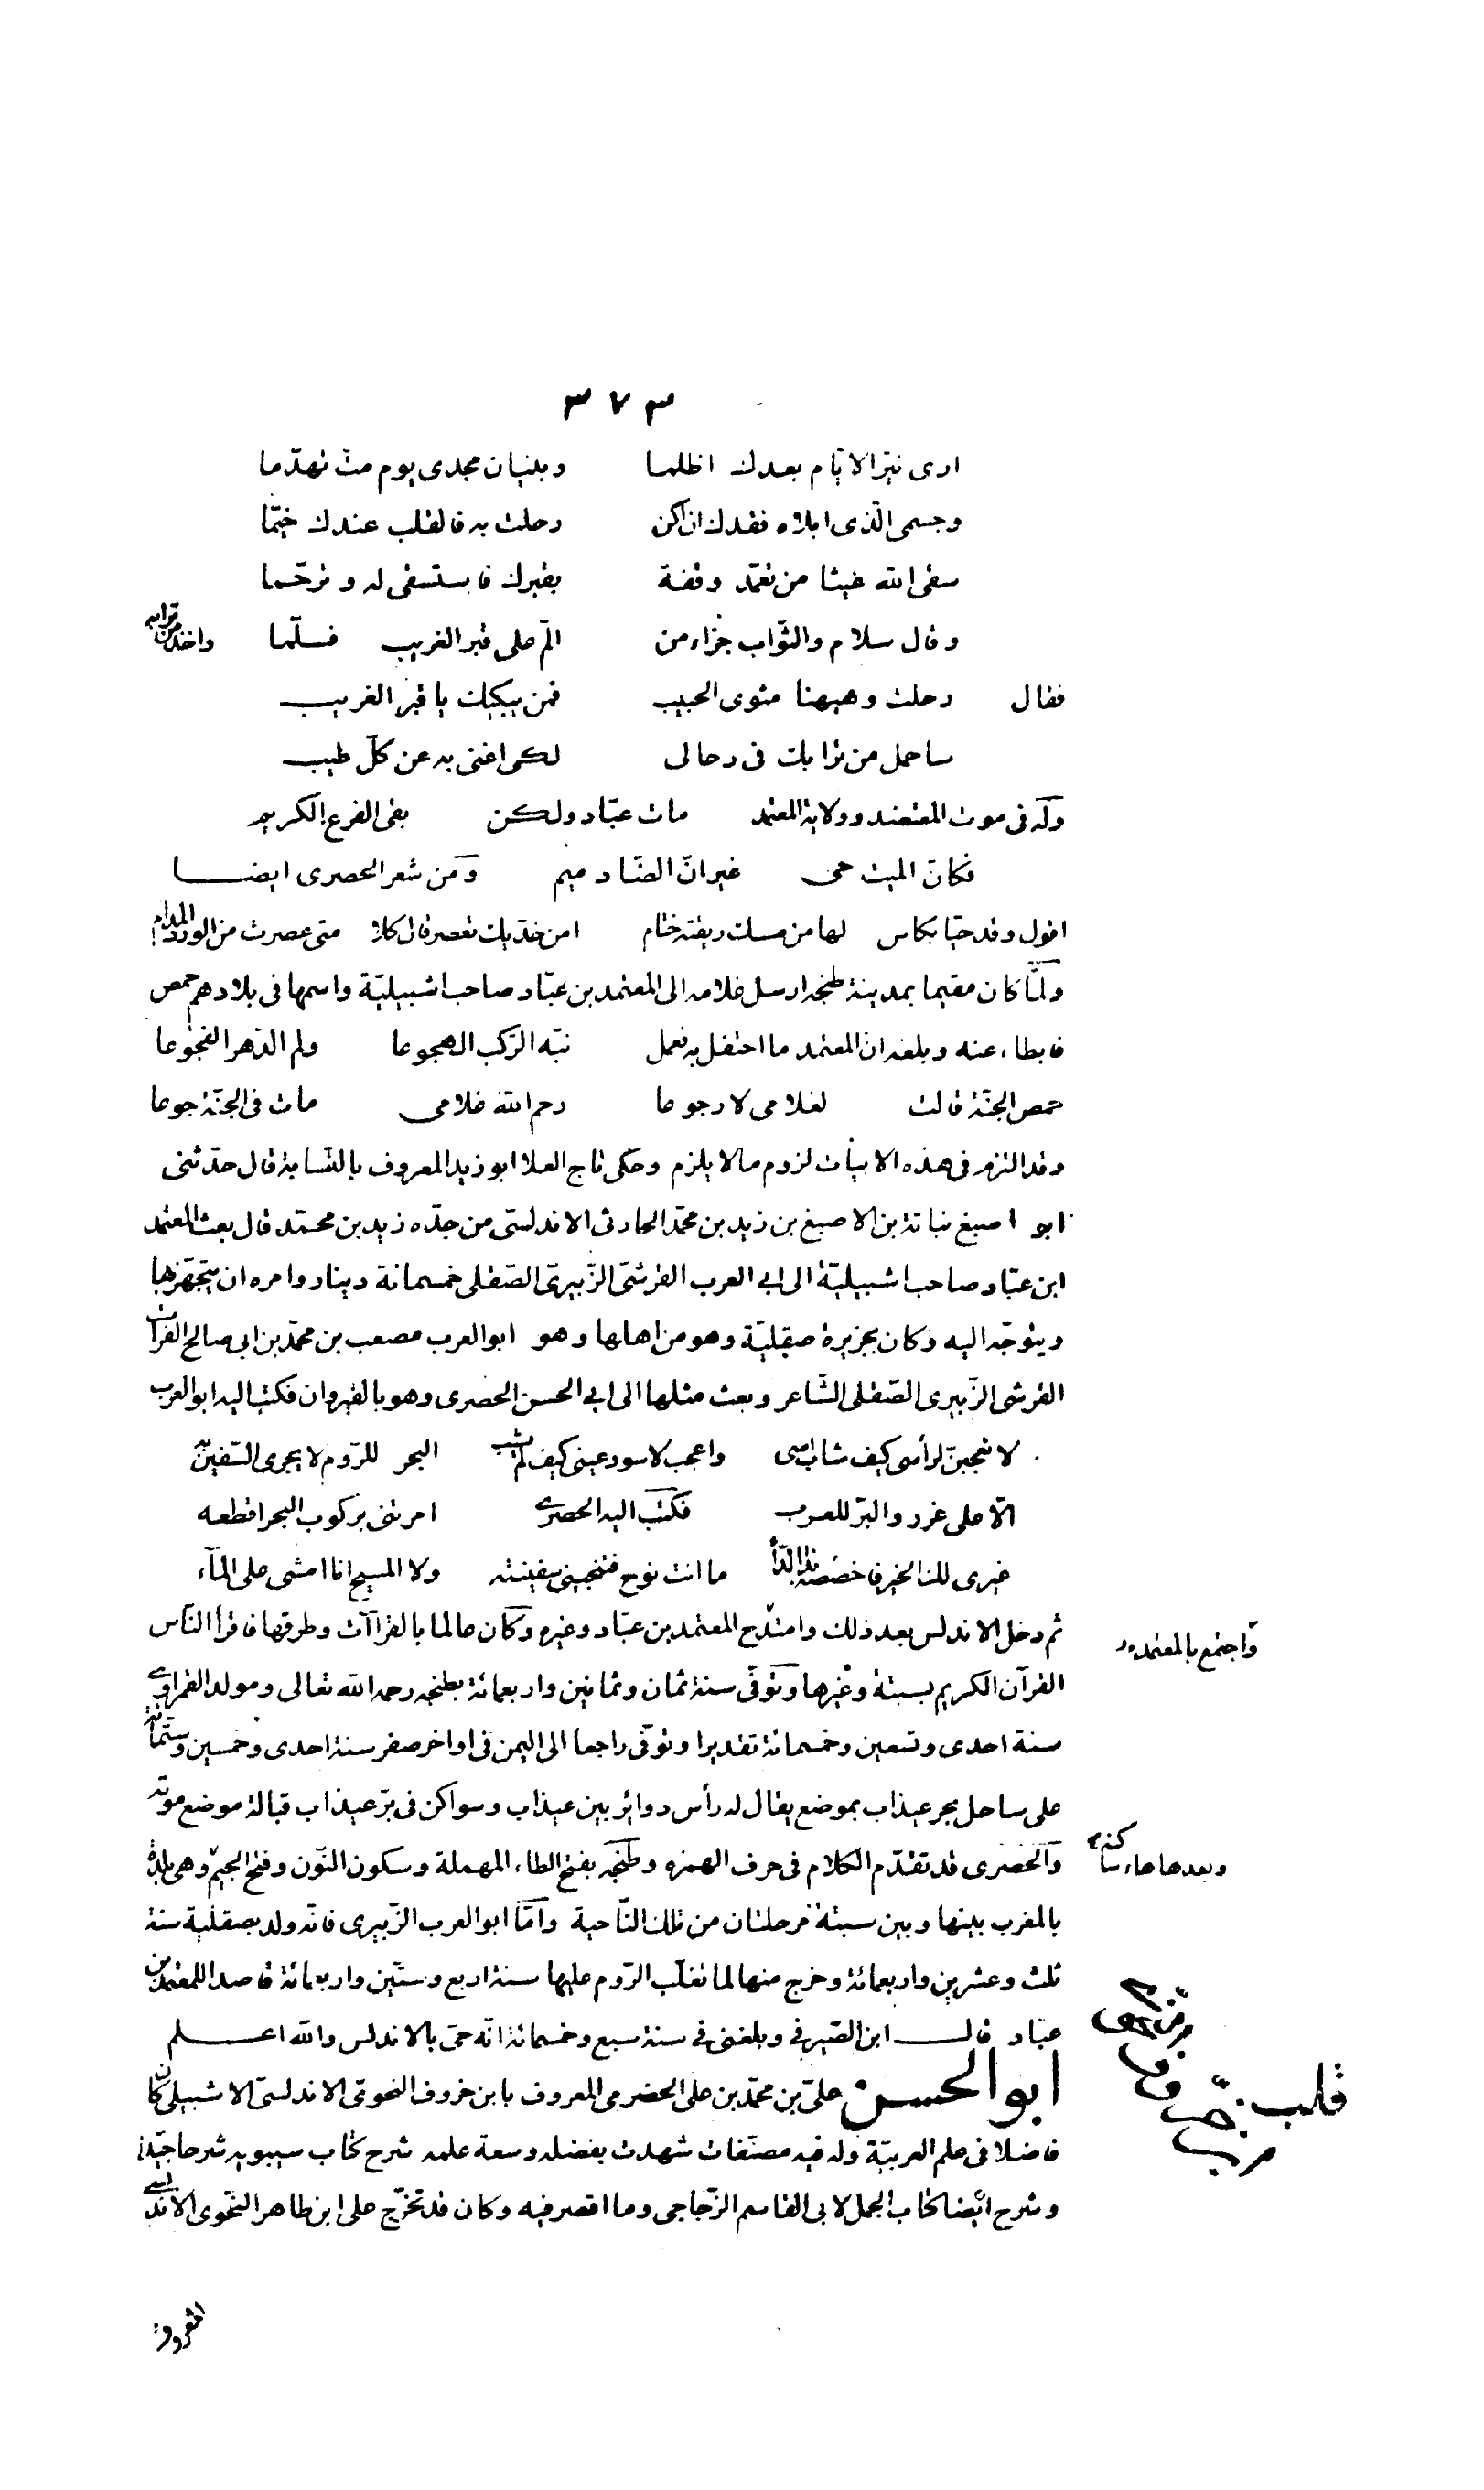 ٣٧٣
ارى نيّر الايّام بعدك اظلما وبنيان مجدى يوم متّ تهدّما
وجسمى الّذى ابلاه فقدك ان اكن رحلت به فالقلب عندك خيّما
سقى الله غيثا من تعمّد وقفة بقبرك فاستسقى له وترحّما
وقال سلام والثّواب جزاء من المّ على قبر الغريب فسلّما واخذ من ترابه
فقال رحلت وههنا مثوى الحبيب فمن يبكيك يا قبر الغريب
ساحمل من ترابك فى رحالى لكى اغنى به عن كلّ طيب
وله فى موت المعتضد وولاية المعتمد مات عبّاد ولكن بقى الفرع الكريم
فكانّ الميت حى غير انّ الضّاد ميم ومن شعر الحصرى ايضا
اقول وقد حيّا بكاس لها من مسك ريقته ختام امن خدّيك تعصر قال كلا متى عصرت من الورد المدام
ولمّا كان مقيما بمدينة طنجه ارسل غلامه الى المعتمد بن عبّاد صاحب اشبيليّة واسمها فى بلادهم حمص
فابطاء عنه وبلغه انّ المعتمد ما احتفل به فعمل نبّه الرّكب الهجوعا ولم الدّهر الفجوعا
حمص الجنّة قالت لغلامى لا رجوعا رحم الله غلامى مات فى الجنّة جوعا
وقد التزم فى هذه الابيات لزوم مالا يلزم وحكى تاج العلا ابو زيد المعروف بالنّسابة قال حدّثنى
ابو اصبغ نباتة بن الاصبغ بن زيد بن محمّد الحارثى الاندلسّى من جدّه زيد بن محمّد قال بعث المعتمد
ابن عبّاد صاحب اشبيليّة الى ابى العرب القرشّى الزّبيرىّ الصّقلى خمسمائة دينار وامره ان يتجهّز بها
ويتوجّه اليه وكان بجزيرة صقليّة وهو من اهلها وهو ابو العرب مصعب بن محمّد بن ابى صالح الفرات
القرشى الزّبيرى الصّقلى الشّاعر وبعث مثلها الى ابى الحسن الحصرى وهو بالقيروان فكتب اليه ابو العرب
لا تعجبنّ لرأسى كيف شاب اسى واعجب لاسود عينى كيف لم يشب البحر للرّوم لا يجرى السّفين به
الّا على غرر والبرّ للعرب فكتب اليه الحصرى امرتنى بركوب البحر اقطعه
غيرى لك الخير فاخصصه بذا الدّاء ما انت نوح فتنجينى سفينته ولا المسيح انا امشى على المآء
ثم دخل الاندلس بعد ذلك وامتدح المعتمد بن عبّاد وغيره وكان عالما بالقراآت وطرقها فاقرأ النّاس
واجتمع بالمعتمد
القرآن الكريم بسبتة وغيرها وتوفّى سنة ثمان وثمانين واربعمائة بطنجه رحمه الله تعالى ومولد
سنة احدى وتسعين وخمسمائة تقديرا وتوفّى راجعا الى اليمن فى اواخر صفر سنة احدى وخمسين وستّمائة
على ساحل بحر عيذاب بموضع يقال له رأس دوائر بين عيذاب وسواكن فى برّ عيذاب قبالة موضع موته
والحصرى قد تقدّم الكلام فى حرف الهمزه وطنجه بفتح الطاء المهملة وسكون النّون وفتح الجيم وهى بلدة
وبعدها هاء ساكنة
بالمغرب بينها وبين سبتة مرحلتان من تلك النّاحية وامّا ابو العرب الزّبيرى فانّه ولد بصقلية سنة
ثلث وعشرين واربعمائة وخرج منها لما تغلّب الرّوم عليها سنة اربع وستّين واربعمائة قاصدا للمعتمد بن
عبّاد قال ابن الصّيرفى وبلغنى فى سنة سبع وخمسمائة انّه حىّ بالاندلس والله اعلم
ابو الحسن علىّ بن محمّد بن على الحضرمى المعروف بابن خروف النحوىّ الاندلسىّ الاشبيلى كان
فاضلا فى علم العربيّة وله فيه مصنّفات شهدت بفضله وسعة علمه شرح كتاب سيبويه شرحا جيّدا
وشرح ايضا كتاب الجمل لابى القاسم الزّجاجى وما اقصر فيه وكان قد تخرّج على ابن طاهر النّحوى الاندلسى